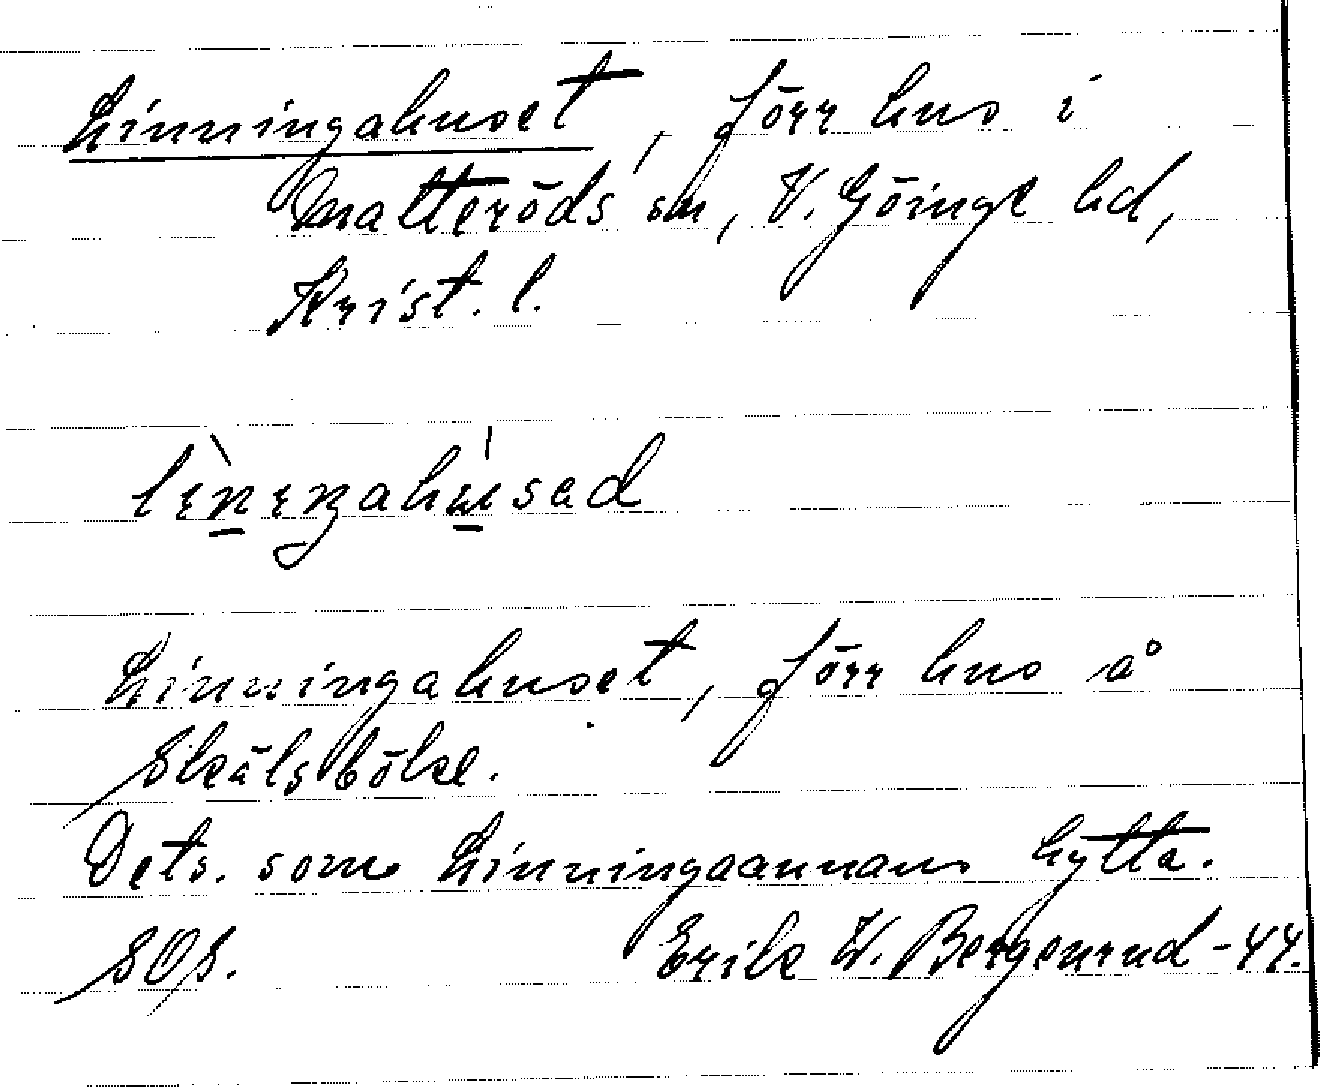 Linningahuset, förr hus i
Matteröds sn, V. Göinge hd,
Krist. l.
Linningahuset, förr hus å
Skälsböke.
Dets. som Linningaannans hytta.
SOS. Erik W. Bergenrud -44.